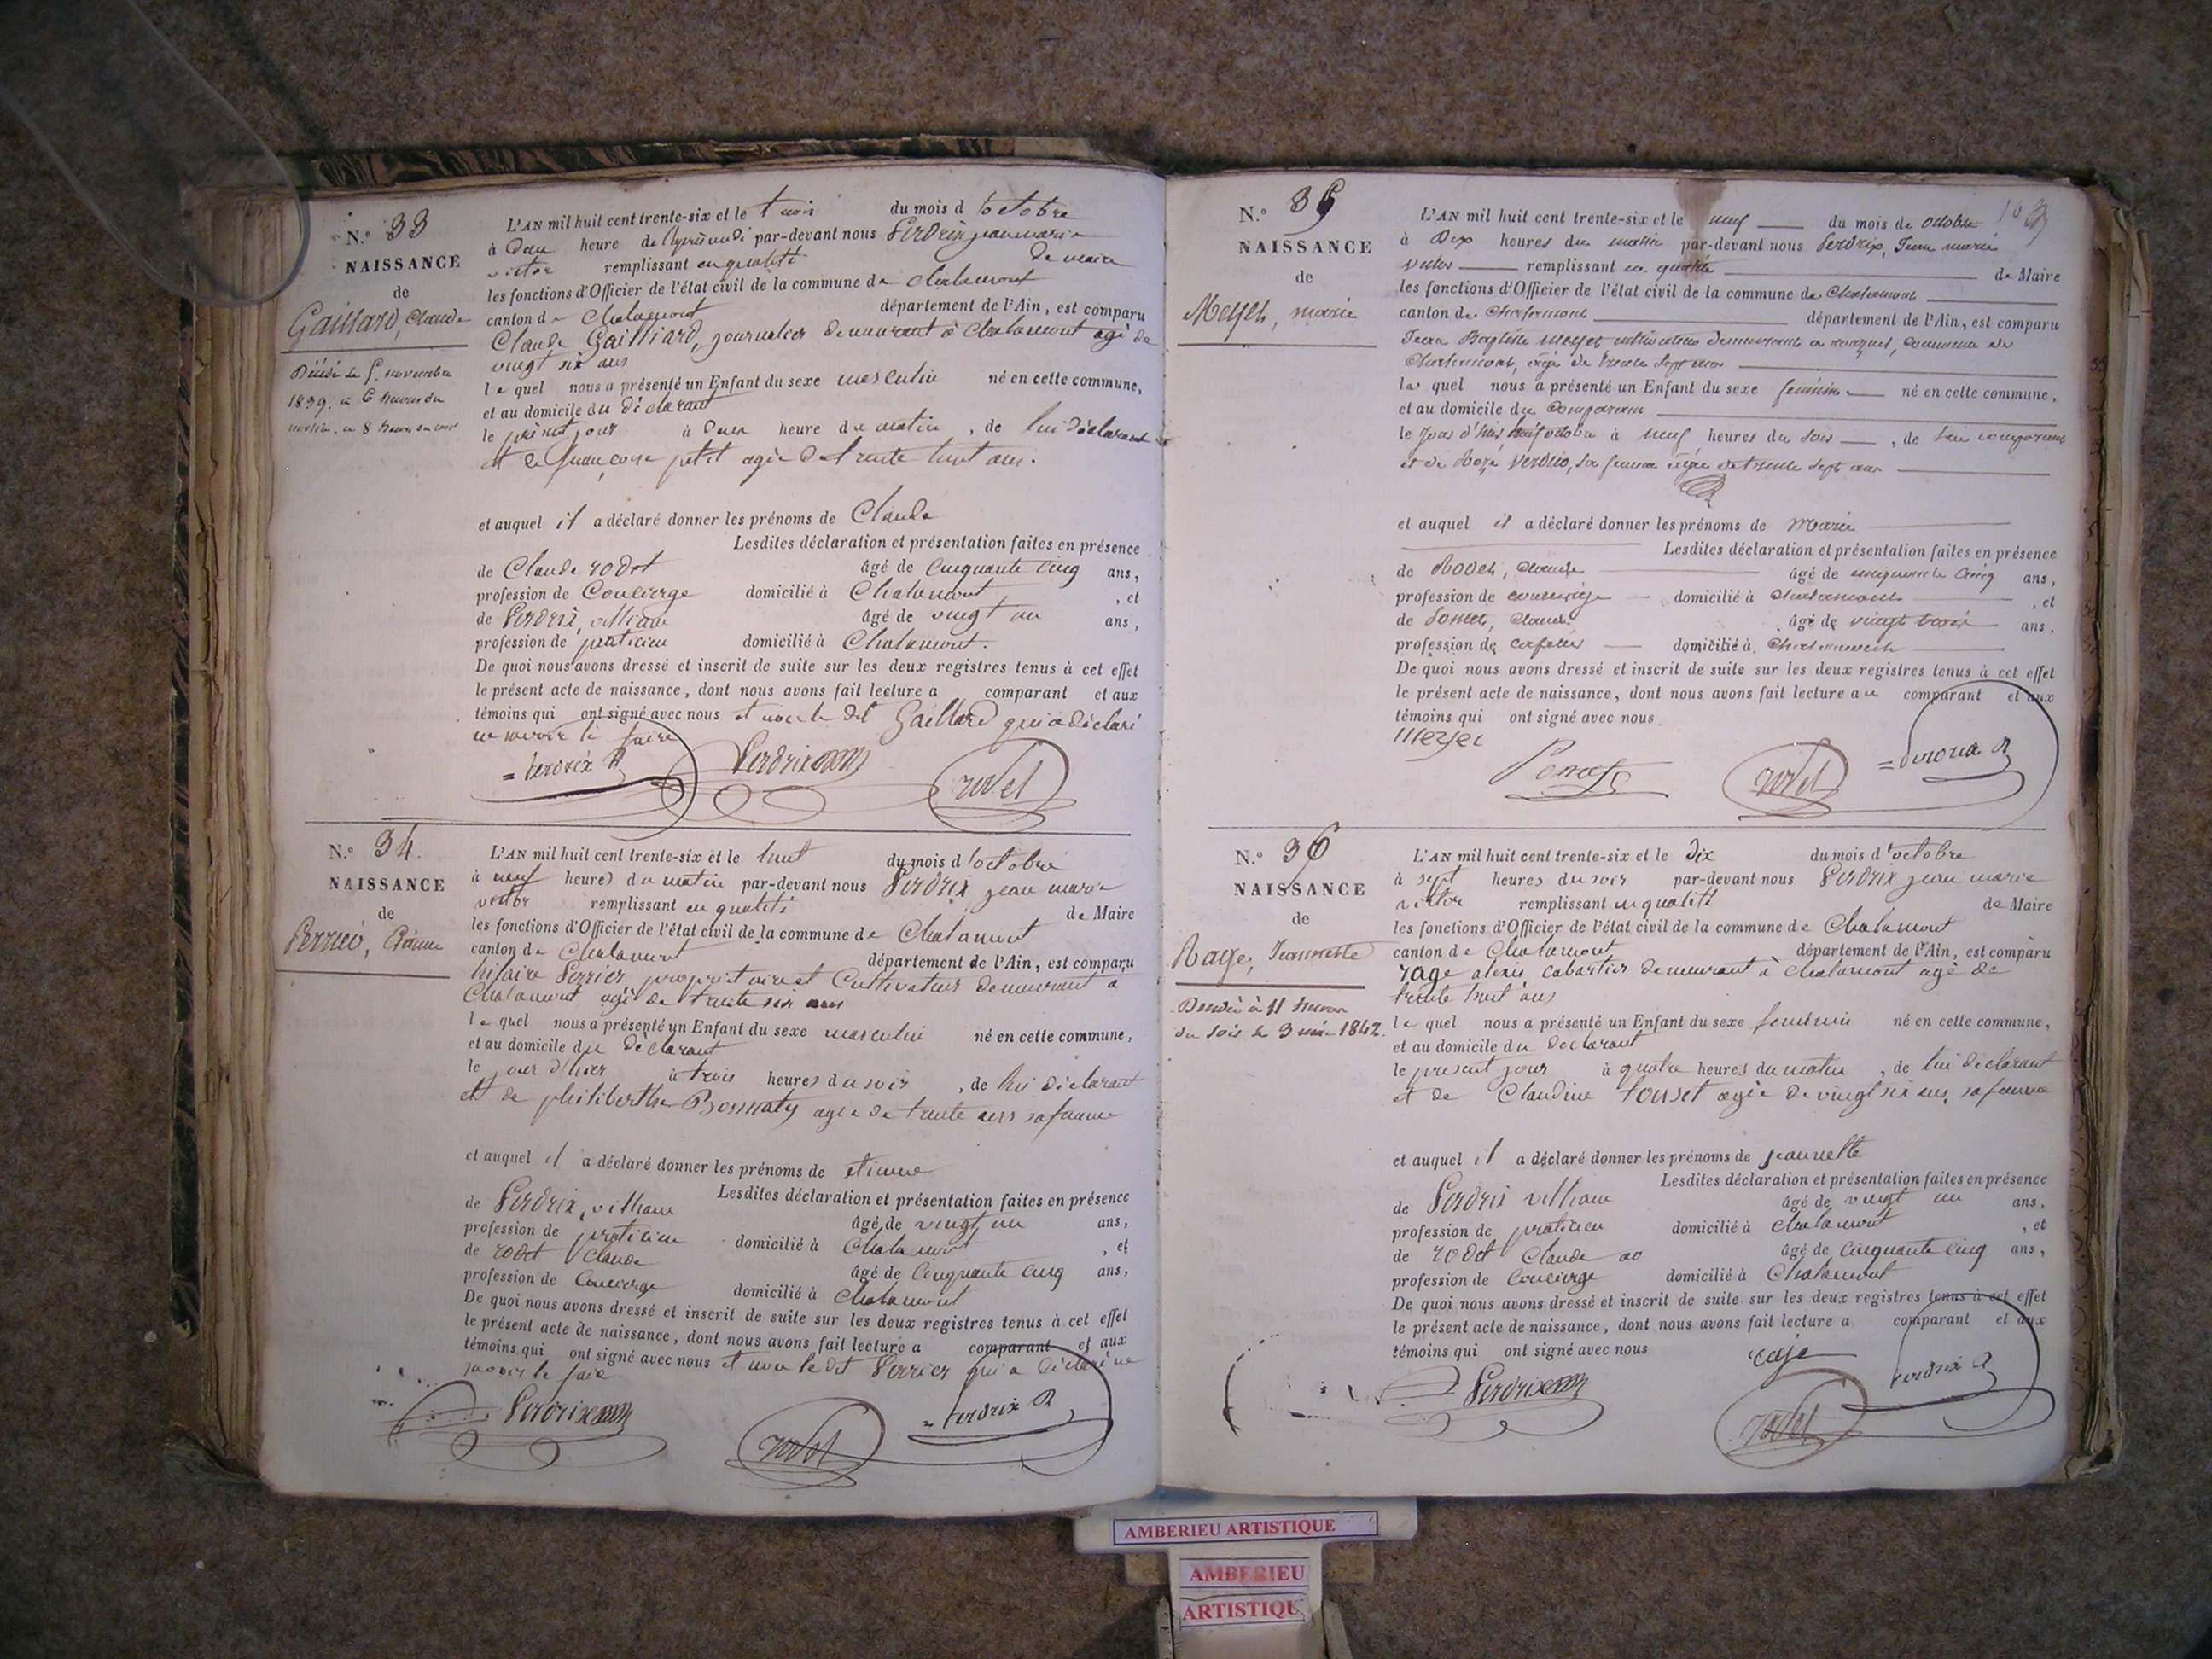 N.° 33
NAISSANCE
de
Gaillard, Claude
Décédé le 5 novembre
1839. à 6 heures du
L'AN mil huit cent trente-six et le trois du mois d'octobre
à deux heure de l'après midi par-devant nous Perdrix jean marie
victor remplissant en qualité de maire
les fonctions d'Officier de l'état civil de la commune de chalamont
canton de Chalamont département de l'Ain, est comparu
Claude Gailliard, journalier demeurant à chalamont agé de
vingt six ans
lequel nous a présenté un Enfant du sexe masculin né en cette commune,
et au domicile du déclarant
le présent jour à deux heure du matin, de lui déclarant
et de françoise petit agée de trente huit ans.
et auquel il a déclaré donner les prénoms de Claude
Lesdites déclaration et présentation faites en présence
de Claude rodet âgé de cinquante cinq ans,
profession de Concierge domicilié à Chalamont, et
de Perdrix, villiam âgé de vingt un ans,
profession de praticien domicilié à Chalamont.
De quoi nous avons dressé et inscrit de suite sur les deux registres tenus à cet effet
le présent acte de naissance, dont nous avons fait lecture a comparant et aux
témoins qui ont signé avec nous et non le dit Gaillard qui a déclaré
ne savoir le faire
Perdrix Perdrix rodet
N.° 34.
NAISSANCE
de
Perrier, Etienne
L'AN mil huit cent trente-six et le huit du mois d'octobre
à neuf heures du matin par-devant nous Perdrix jean marie
victor remplissant en qualité de Maire
les fonctions d'Officier de l'état civil de la commune de Chalamont
canton de Chalamont département de l'Ain, est comparu
hilaire Perrier propriétaire et Cultivateur demeurant à
Chalamont agé de trente six ans
lequel nous a présenté un Enfant du sexe masculin né en cette commune,
et au domicile du déclarant
le jour d'hier à trois heures du soir, de lui déclarant
et de philiberthe agée de trente ans sa femme
et auquel il a déclaré donner les prénoms de etienne
Lesdites déclaration et présentation faites en présence
de Perdrix, villiam âgé de vingt un ans,
profession de praticien domicilié à Chalamont, et
de rodet Claude âgé de Cinquante cinq ans,
profession de Concierge domicilié à Chalamont
De quoi nous avons dressé et inscrit de suite sur les deux registres tenus à cet effet
le présent acte de naissance, dont nous avons fait lecture a comparant et aux
témoins qui ont signé avec nous et non le dit Perrier qui a déclaré ne
savoir le faire
Perdrix rodet Perdrix
N.° 35
NAISSANCE
de
marie
L'AN mil huit cent trente-six et le neuf du mois de octobre
à Dix heures du matin par-devant nous Perdrix, Jean marie
victor remplissant en qualité de Maire
les fonctions d'Officier de l'état civil de la commune de Chalamont
canton de Chalamont département de l'Ain, est comparu
Jean Baptiste demeurant a commune de
Chalamont, âgé de trente sept ans
lequel nous a présenté un Enfant du sexe feminin né en cette commune,
et au domicile du comparant
le jour d'hier huit octobre à neuf heures du soir, de lui comparant
et de Rose sa femme âgée de trente sept ans
et auquel il a déclaré donner les prénoms de Marie
Lesdites déclaration et présentation faites en présence
de Rodet, Claude âgé de cinquante cinq ans,
profession de concierge domicilié à Chalamont, et
de Claude âgé de vingt trois ans,
profession de cafetier domicilié à Chalamont
De quoi nous avons dressé et inscrit de suite sur les deux registres tenus à cet effet
le présent acte de naissance, dont nous avons fait lecture au comparant et aux
témoins qui ont signé avec nous
rodet Perdrix
N.° 36
NAISSANCE
de
Rage, Jeannette
Décédée à 11 heures
du soir le 3 1842.
L'AN mil huit cent trente-six et le dix du mois d'octobre
à sept heures du soir par-devant nous Perdrix jean marie
victor remplissant en qualité de Maire
les fonctions d'Officier de l'état civil de la commune de Chalamont
canton de Chalamont département de l'Ain, est comparu
rage alexis cabartier demeurant à chalamont agé de
trente huit ans
lequel nous a présenté un Enfant du sexe feminin né en cette commune,
et au domicile du declarant
le present jour à quatre heures du matin, de lui declarant
et de Claudine agée de vingt six ans, sa femme
et auquel il a déclaré donner les prénoms de jeannette
Lesdites déclaration et présentation faites en présence
de Perdrix villiam âgé de vingt un ans,
profession de praticien domicilié à Chalamont, et
de rodet Claude âgé de cinquante cinq ans,
profession de Concierge domicilié à Chalamont
De quoi nous avons dressé et inscrit de suite sur les deux registres tenus à cet effet
le présent acte de naissance, dont nous avons fait lecture a comparant et aux
témoins qui ont signé avec nous
rage
Perdrix rodet Perdrix
AMBERIEU ARTISTIQUE
AMBERIEU
ARTISTIQU